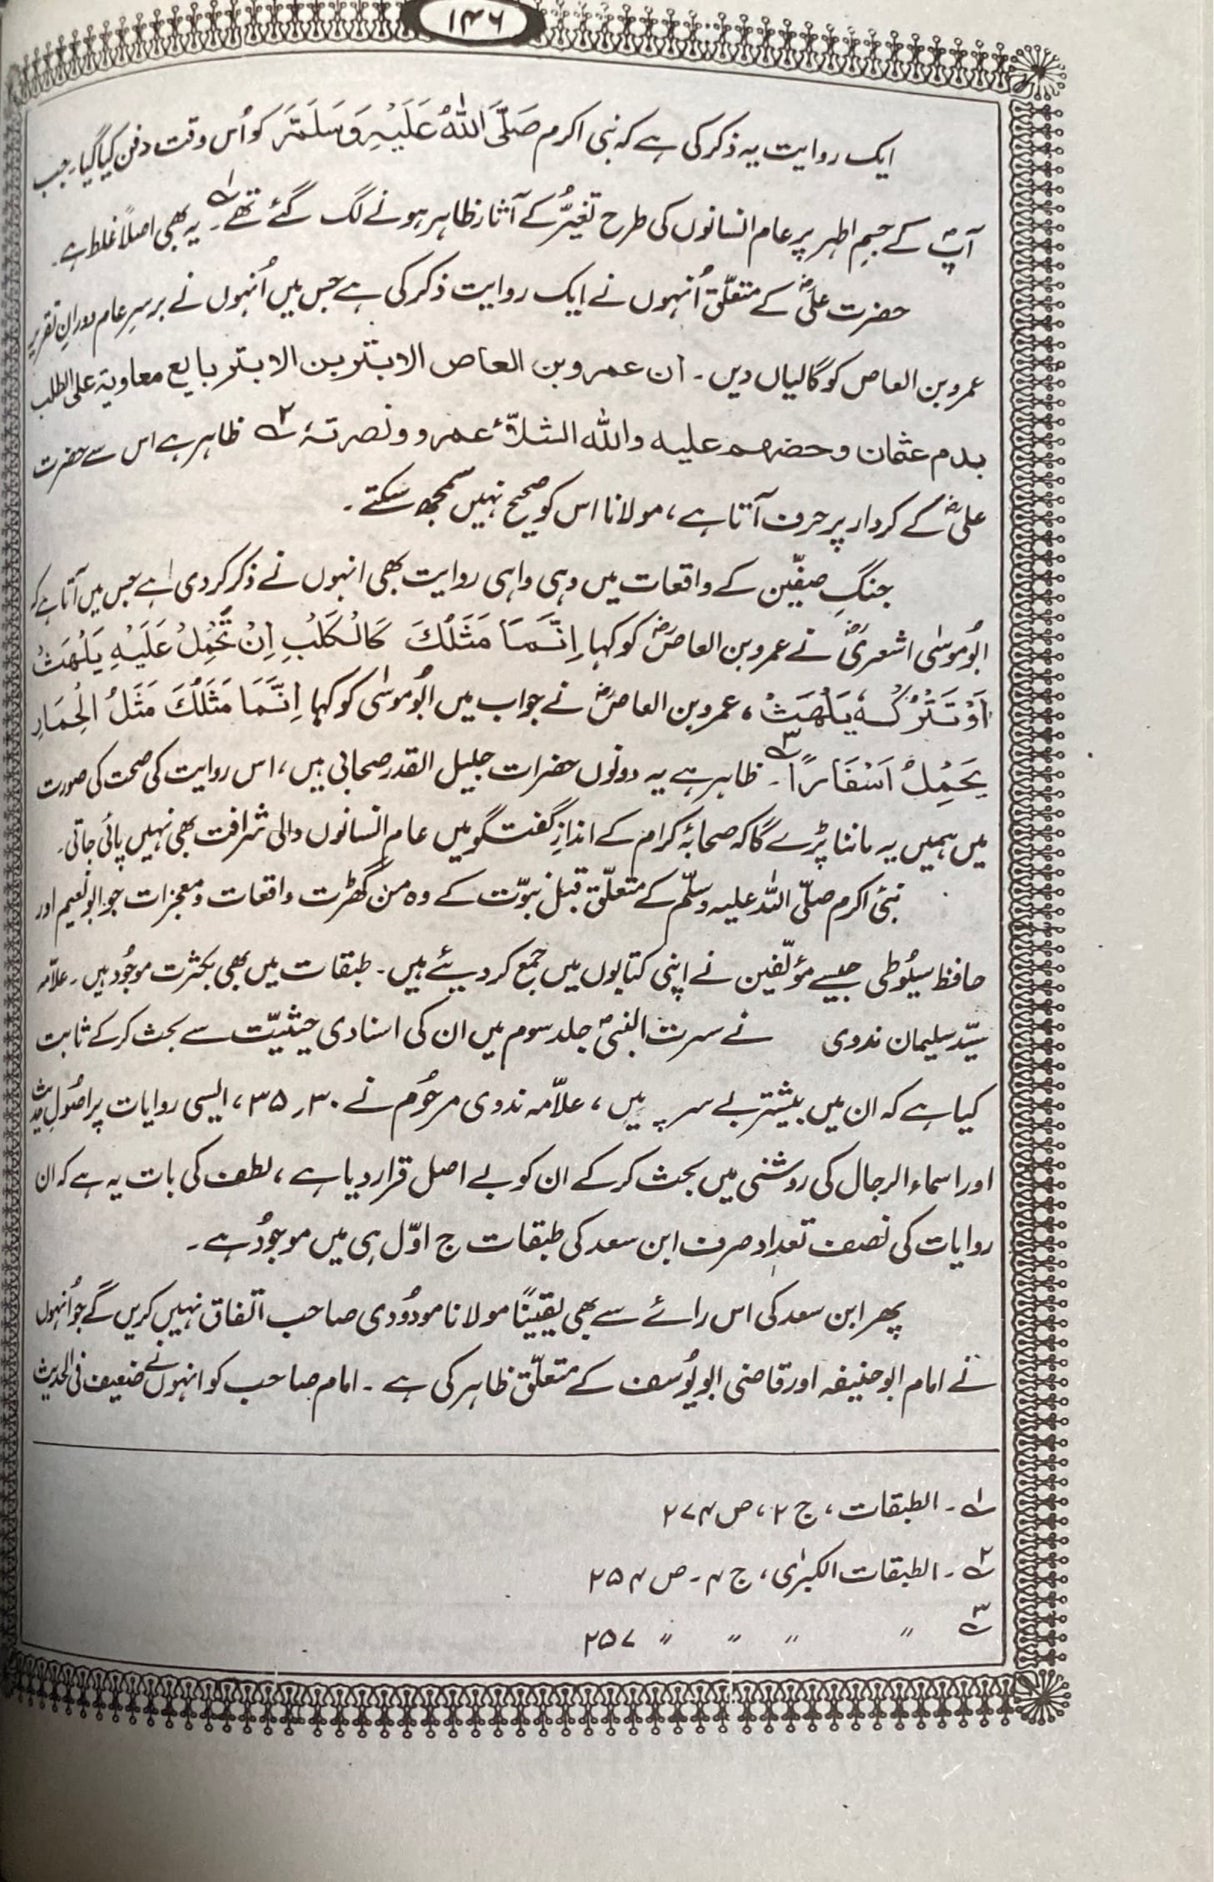 ۱۴۶
ایک روایت یہ ذکر کی ہے کہ نبی اکرم صَلَّی اللّٰہُ عَلَیْہِ وَسَلَّمَ کو اُس وقت دفن کیا گیا، جب
آپؐ کے جسمِ اطہر پر عام انسانوں کی طرح تغیُّر کے آثار ظاہر ہونے لگ گئے تھے۔ ۱؎ یہ بھی اصلاً غلط ہے۔
حضرت علیؓ کے متعلّق اُنہوں نے ایک روایت ذکر کی ہے جس میں اُنہوں نے برسرِ عام دورانِ تقریر
عمرو بن العاص کو گالیاں دیں۔ ان عمرو بن العاص الابتر بن الابتر بایع معاویة علی الطلب
بدم عثمان وحضہم علیہ واللہ الشلّاء عمرو ونصرتہٗ ۲؎ ظاہر ہے اس سے حضرت
علیؓ کے کردار پر حرف آتا ہے، مولانا اس کو صحیح نہیں سمجھ سکتے۔
جنگِ صفّین کے واقعات میں وہی واہی روایت بھی انہوں نے ذکر کر دی ہے جس میں آتا ہے کہ
ابُو موسٰی اشعریؓ نے عمرو بن العاصؓ کو کہا اِنَّمَا مَثَلُكَ كَالْكَلْبِ اِنْ تَحْمِلْ عَلَيْهِ يَلْهَثْ
اَوْ تَتْرُكْهُ يَلْهَثْ، عمرو بن العاصؓ نے جواب میں ابُو موسٰی کو کہا اِنَّمَا مَثَلُكَ مَثَلُ الْحِمَارِ
يَحْمِلُ اَسْفَارًا ۳؎۔ ظاہر ہے یہ دونوں حضرات جلیل القدر صحابی ہیں، اس روایت کی صحت کی صورت
میں ہمیں یہ ماننا پڑے گا کہ صحابۂ کرام کے اندازِ گفتگو میں عام انسانوں والی شرافت بھی نہیں پائی جاتی۔
نبیٔ اکرم صلّی اللہ علیہ وسلّم کے متعلّق قبل نبوّت کے وہ من گھڑت واقعات و معجزات جو ابو نُعیم اور
حافظ سیُوطی جیسے مؤلّفین نے اپنی کتابوں میں جمع کر دیئے ہیں۔ طبقات میں بھی بکثرت موجُود ہیں۔ علاّمہ
سیّد سلیمان ندوی نے سرت النبیؐ جلد سوم میں ان کی اسنادی حیثیّت سے بحث کر کے ثابت
کیا ہے کہ ان میں بیشتر بے سرپہیں، علاّمہ ندوی مرحُوم نے ۳۰، ۳۵، ایسی روایات پر اصُولِ حدیث
اور اسماء الرجال کی روشنی میں بحث کر کے ان کو بے اصل قرار دیا ہے، لطف کی بات یہ ہے کہ ان
روایات کی نصف تعداد صرف ابن سعد کی طبقات ج اوّل ہی میں موجُود ہے۔
پھر ابن سعد کی اس رائے سے بھی یقینًا مولانا مودُودی صاحب اتفاق نہیں کریں گے جو اُنہوں
نے امام ابو حنیفہ اور قاضی ابو یُوسف کے متعلّق ظاہر کی ہے۔ امام صاحب کو انہوں نے ضعیف فی الحدیث
۱؎۔ الطبقات، ج ۲، ص ۲۷۴
۲؎۔ الطبقات الکبرٰی، ج ۴۔ ص ۲۵۴
۳؎ 〃 〃 〃 〃 ۲۵۷